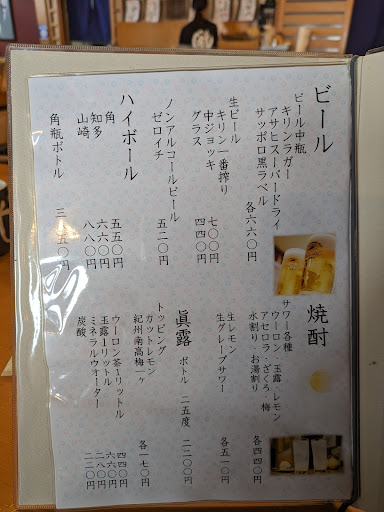 ビール
ビール中瓶
キリンラガー
アサヒスーパードライ
サッポロ黒ラベル
各六六〇円
生ビール
キリン一番搾り
中ジョッキ
七〇〇円
グラス
四四〇円
ノンアルコールビール
ゼロイチ
五二〇円
ハイボール
角
五五〇円
知多
六六〇円
山崎
八八〇円
角瓶ボトル
三八五〇円
焼酎
サワー各種
ウーロン・玉露・レモン
アセロラ・ざくろ・梅
水割り・お湯割り
各四四〇円
生レモン
生グレープサワー
各五一〇円
眞露 ボトル 二五度
二二〇〇円
トッピング
カットレモン
紀州南高梅一ヶ
各一七〇円
ウーロン茶1リットル
四四〇円
玉露1リットル
六六〇円
ミネラルウオーター
二八〇円
炭酸
二二〇円